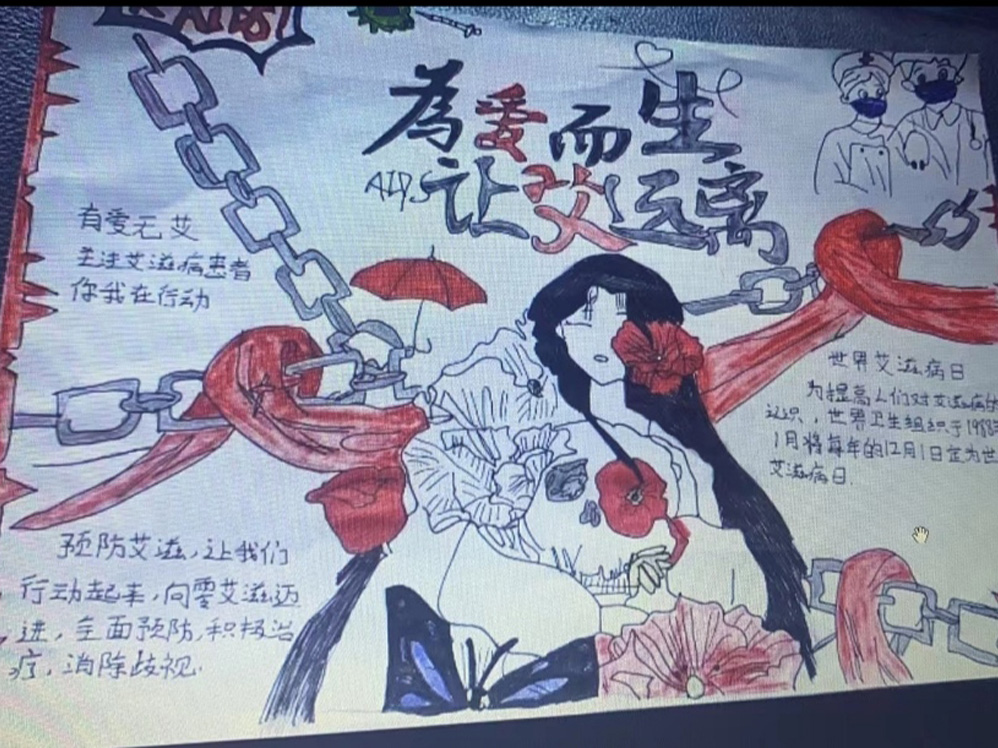 AIDS!
為爱而生
AIDS让艾远离
有爱无艾
关注艾滋病患者
你我在行动
世界艾滋病日
为提高人们对艾滋病的
认识，世界卫生组织于1988年
1月将每年的12月1日定为世
艾滋病日.
预防艾滋，让我们
行动起来，向零艾滋迈
进，全面预防，积极治
疗，消除歧视.